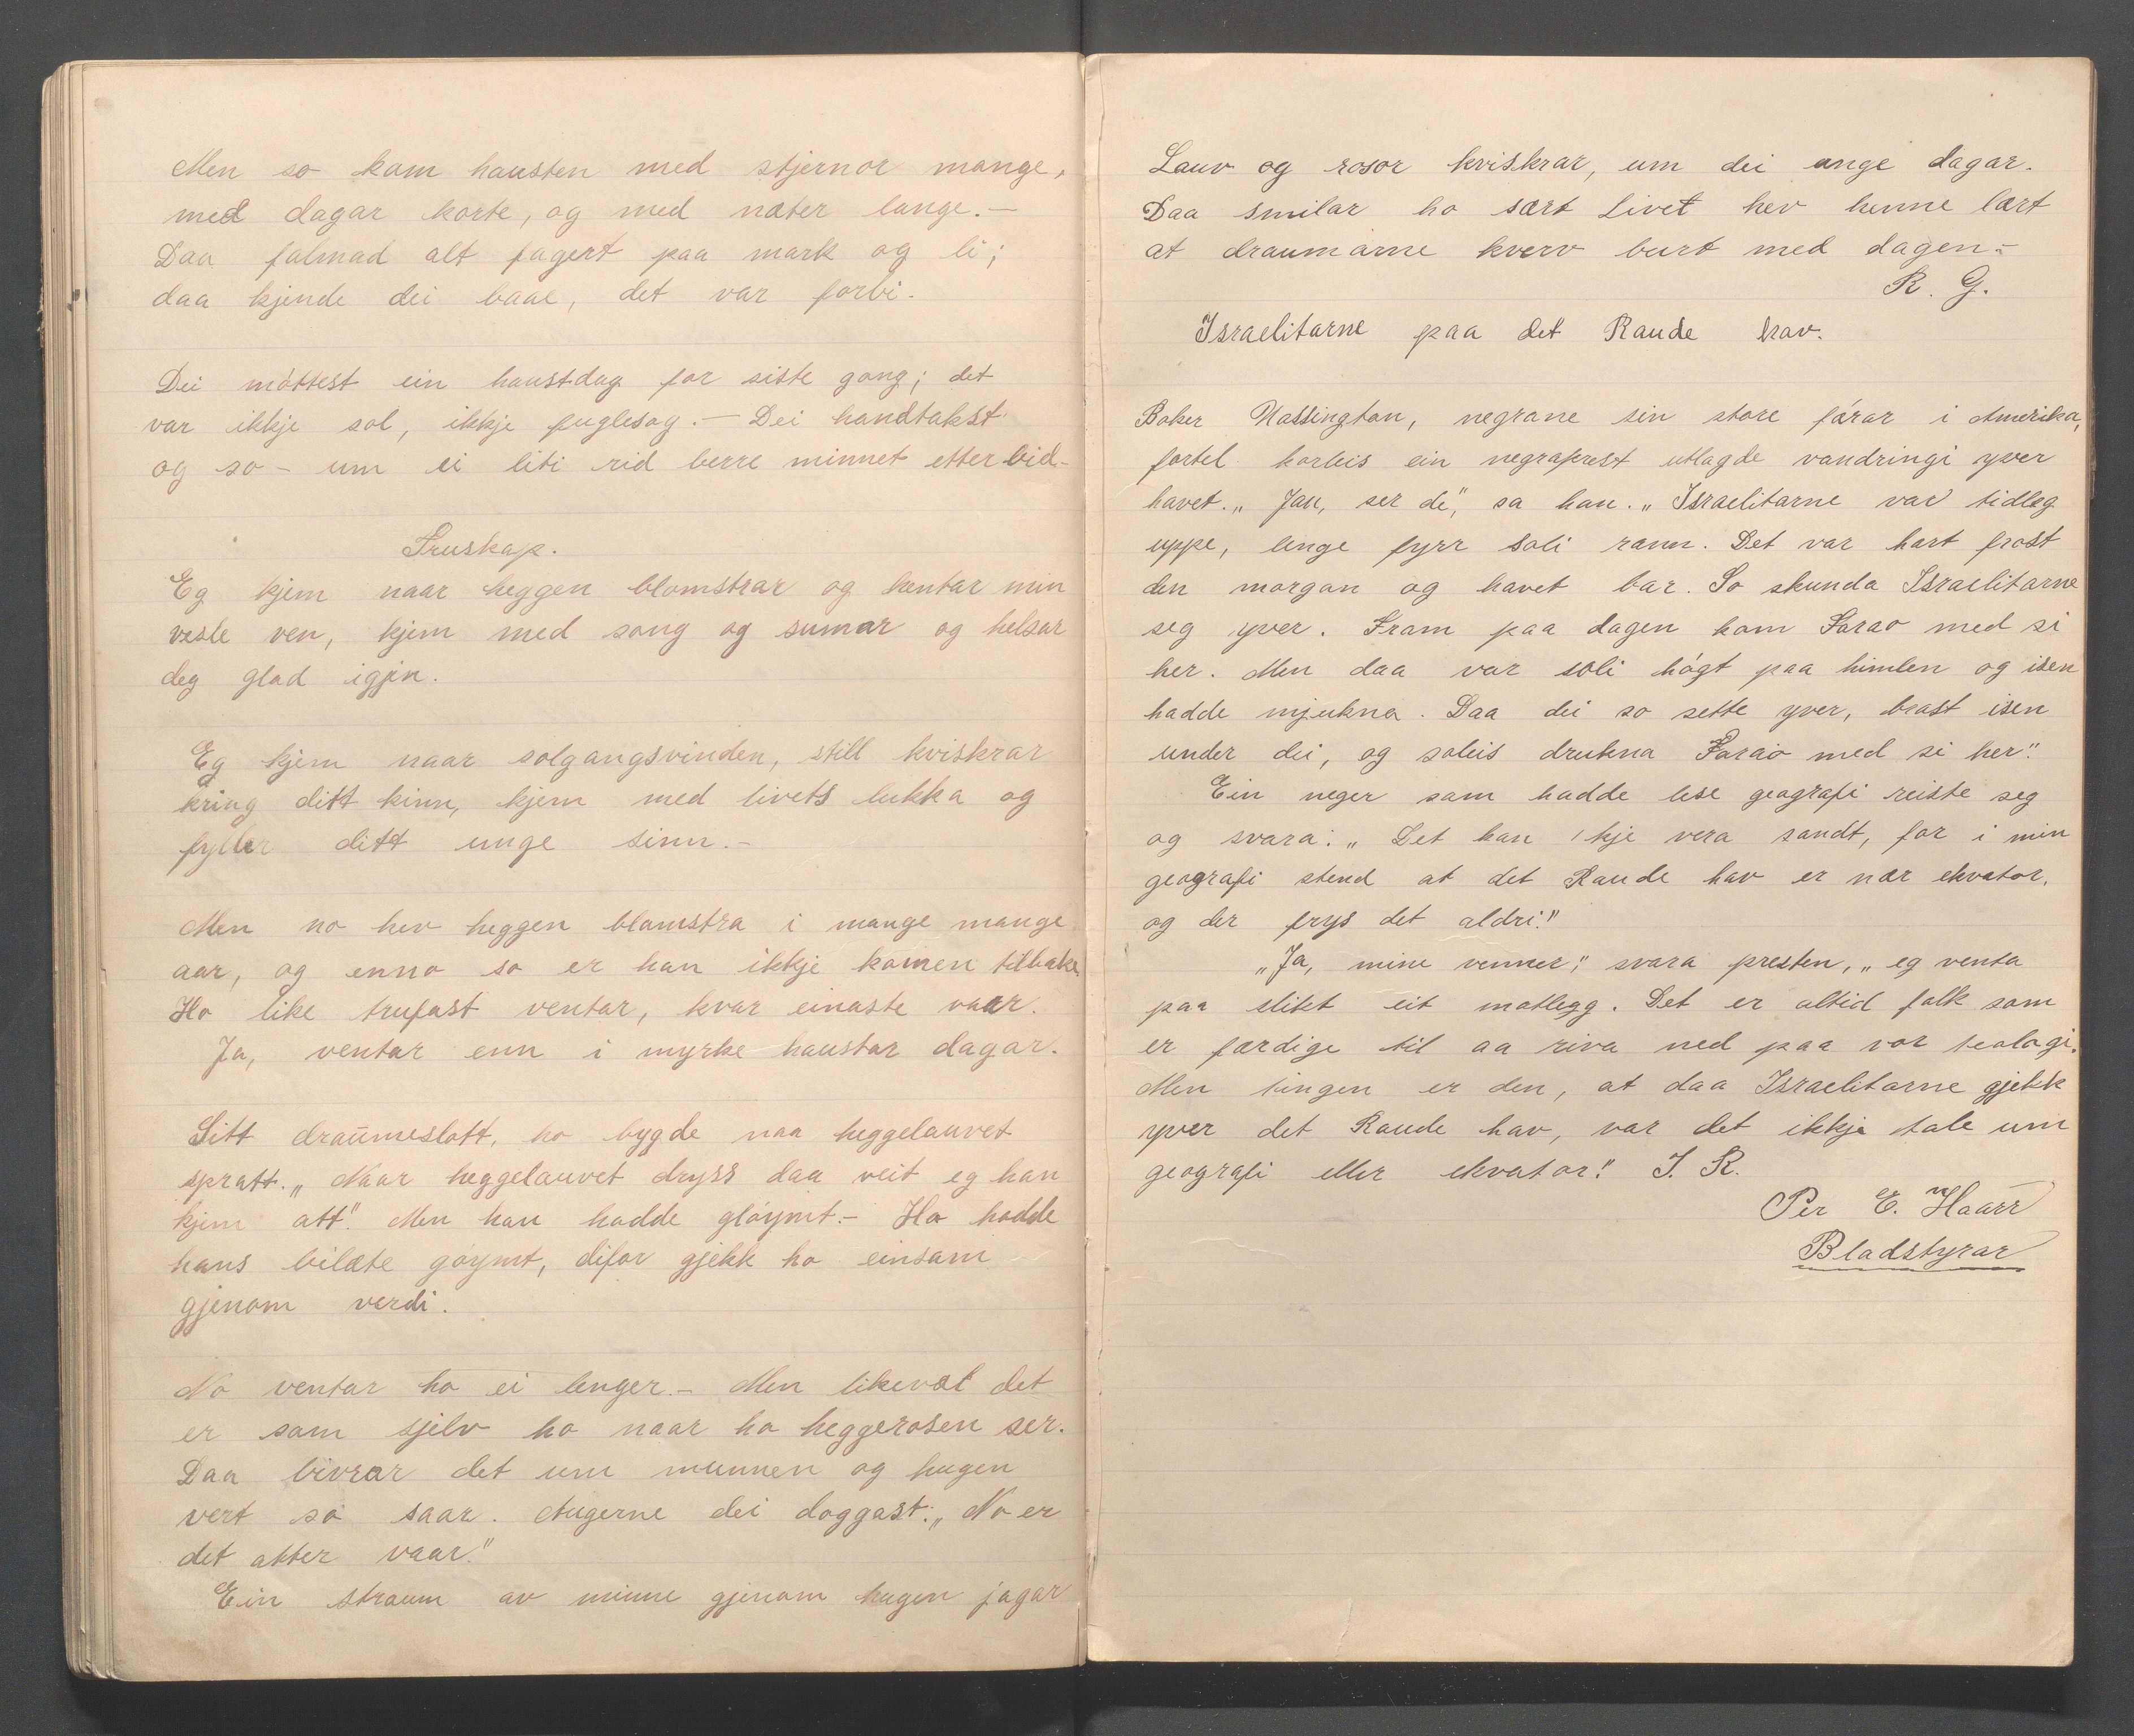 Men so kom hausten med stjernor mange,
med dagar korte, og med næter lange.—
Daa falmad alt fagert paa mark og li;
daa kjende dei baae, det var forbi.
Dei móttest ein haustdag for siste gong; det
var ikkje sol, ikkje fuglesog.— Dei handtakst
og so – um ei liti rid berre minnet etter bid–
Truskap.
Eg kjem naar heggen blomstrar og hentar min
vesle ven, kjem med song og sumar og helsar
deg glad igjin.
Eg kjem naar solgangsvinden, still kviskrar
kring ditt kinn, kjem med livets lukka og
fyller ditt unge sinn.–
Men no hev heggen blomstra i mange mange
aar, og enno so er han ikkje komen tilbake
Ho like trufast ventar, kvar einaste vaar.
Ja, ventar enn i myrke haustar dagar.
Sitt draumeslott, ho bygde naa heggelauvet
spratt. „Naar heggelauvet dryss daa veit eg han
kjem att." Men han hadde glóymt.– Ho hadde
hans bilæte góymt, difor gjekk ho einsam
gjenom verdi.
No ventar ho ei lenger.– Men likevæl det
er som sjelv ho naar ho heggerosen ser.
Daa bivrar det um munnen og hugen
vert so saar. Augerne dei doggast: „No er
det atter vaar."
Ein straum av minne gjenom hugen jagar
Lauv og rosor kviskrar, um dei unge dagar.
Daa smilar ho sært Livet hev henne lært
at draumarne kverv burt med dagen.–
R. G.
Israelitarne paa det Raude hav.
Boker Wassington, negrane sin store fórar i Amerika,
fortel korleis ein negraprest utlagde vandringi yver
havet. „Jau, ser de", sa han. „Israelitarne var tidleg
uppe, lenge fyrr soli rann. Det var hart frost
den morgon og havet bar. So skunda Israelitarne
seg yver. Fram paa dagen kom Farao med si
her. Men daa var soli hógt paa himlen og isen
hadde mjukna. Daa dei so sette yver, brast isen
under dei, og soleis drukna Farao med si her."
Ein neger som hadde lese geografi reiste seg
og svara: „Det kan 'kje vera sandt, for i min
geografi stend at det Raude hav er nær ekvator,
og der frys det aldri!"
„Ja, mine venner", svara presten, „eg venta
paa slikt eit motlegg. Det er altid folk som
er færdige til aa riva ned paa vor teologi.
Men tingen er den, at daa Israelitarne gjekk
yver det Raude hav, var det ikkje tale um
geografi eller ekvator!" J. R.
Per E. Haarr
Bladstyrar